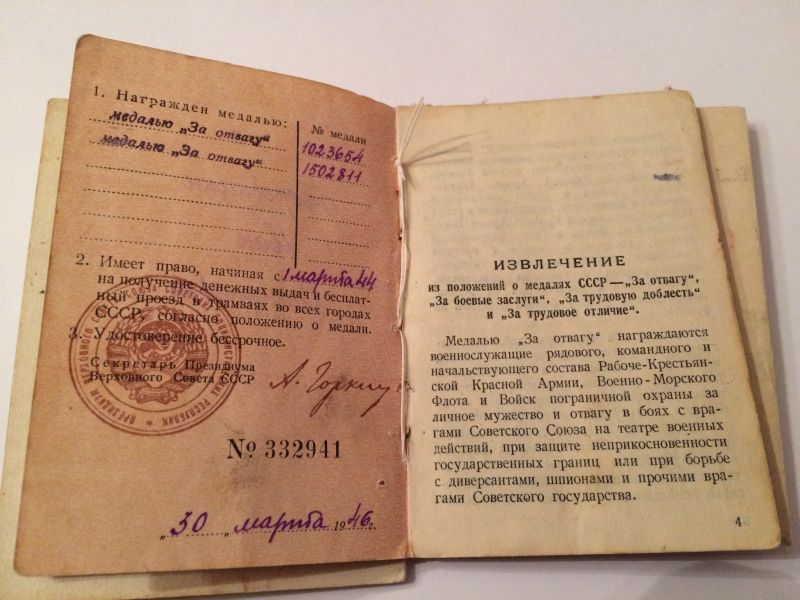 1. Награжден медалью:
№ медали
медалью „За отвагу“ 1023654
медалью „За отвагу“ 1502811
2. Имеет право, начиная с 1 марта 44
на получение денежных выдач и бесплат-
ный проезд в трамваях во всех городах
СССР, согласно положению о медали.
3. Удостоверение бессрочное.
Секретарь Президиума
Верховного Совета СССР
А. Горкин
№ 332941
„30 „ марта 1946 г.
ИЗВЛЕЧЕНИЕ
из положений о медалях СССР — „За отвагу“,
„За боевые заслуги“, „За трудовую доблесть“
и „За трудовое отличие“.
Медалью „За отвагу“ награждаются
военнослужащие рядового, командного и
начальствующего состава Рабоче-Крестьян-
ской Красной Армии, Военно-Морского
Флота и Войск пограничной охраны за
личное мужество и отвагу в боях с вра-
гами Советского Союза на театре военных
действий, при защите неприкосновенности
государственных границ или при борьбе
с диверсантами, шпионами и прочими вра-
гами Советского государства.
4